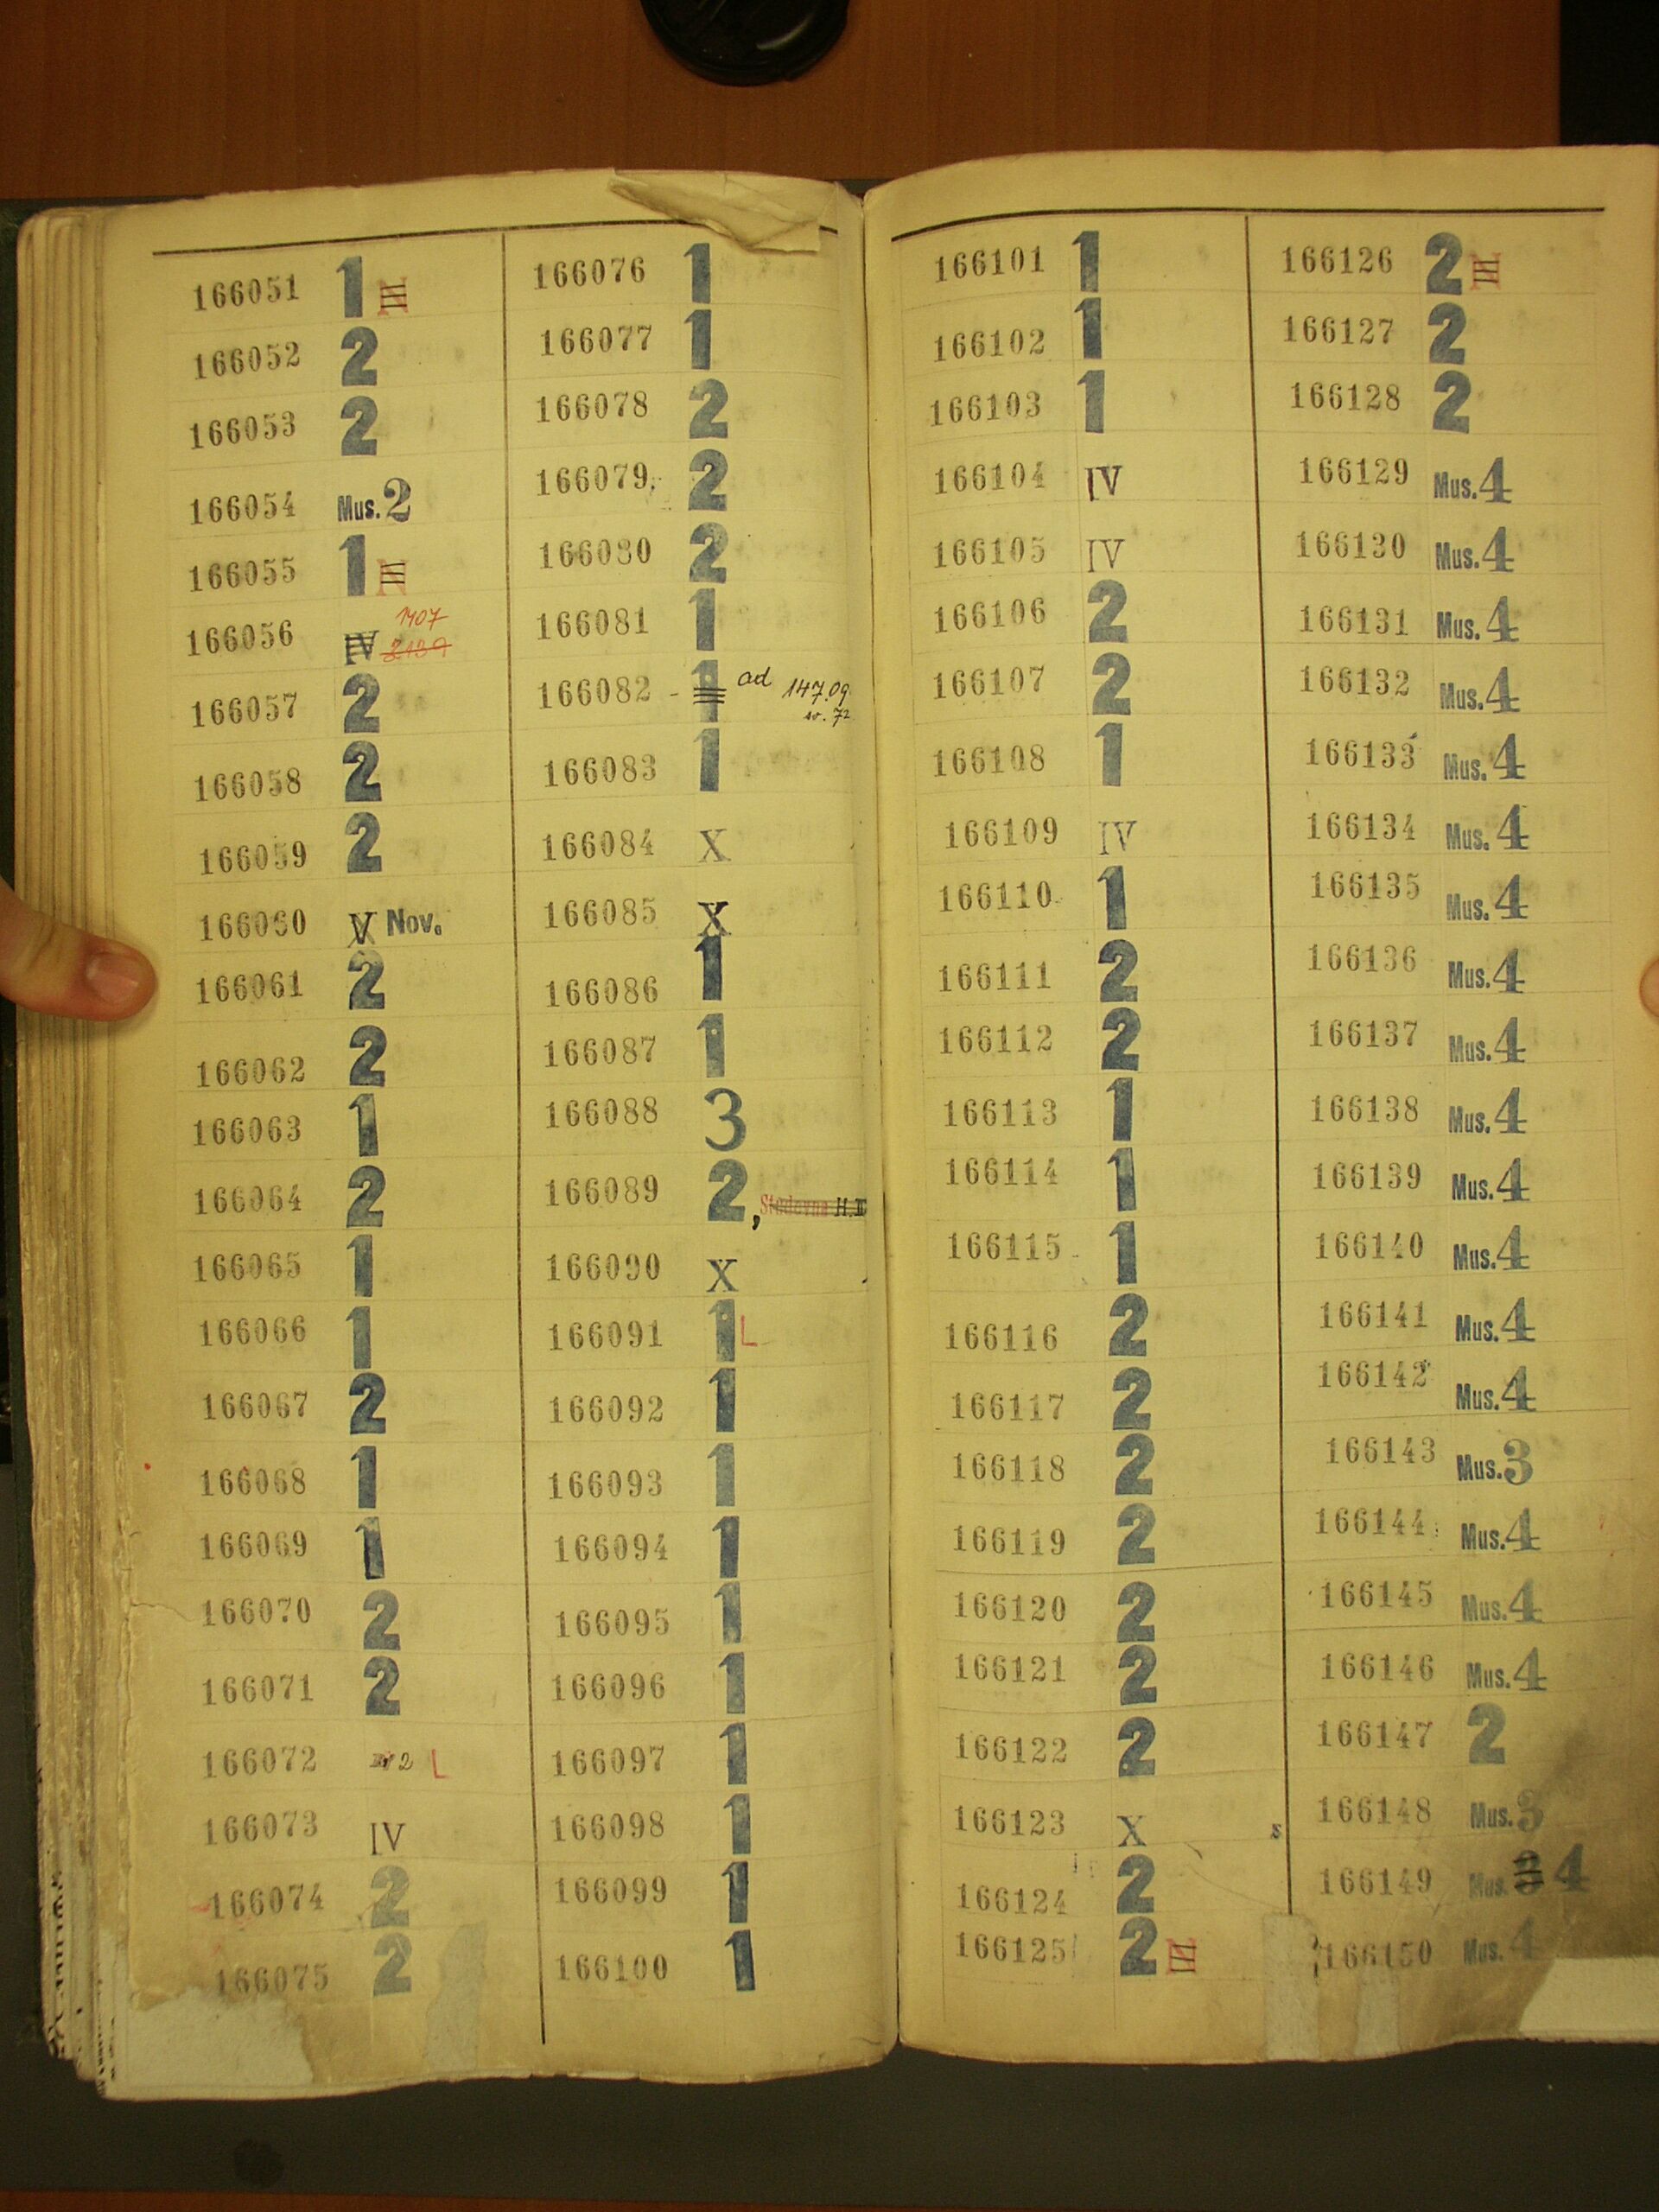 166051 1
166052 2
166053 2
166054 Mus. 2
166055 1
1407
166056 IV 2139
166057 2
166058 2
166059 2
166060 X Nov.
166061 2
166062 2
166063 1
166064 2
166065 1
166066 1
166067 2
166068 1
166069 1
166070 2
166071 2
166072 2 L
166073 IV
166074 2
166075 2
166076 1
166077 1
166078 2
166079 2
166080 2
166081 1
166082 - 1 ad 147.09
166083 1
166084 X
166085 X
166086 1
166087 1
166088 3
166089 2, Studovna H.
166090 X
166091 1 L
166092 1
166093 1
166094 1
166095 1
166096 1
166097 1
166098 1
166099 1
166100 1
166101 1
166102 1
166103 1
166104 IV
166105 IV
166106 2
166107 2
166108 1
166109 IV
166110 1
166111 2
166112 2
166113 1
166114 1
166115 1
166116 2
166117 2
166118 2
166119 2
166120 2
166121 2
166122 2
166123 X
166124 2
166125 2
166126 2
166127 2
166128 2
166129 Mus. 4
166130 Mus. 4
166131 Mus. 4
166132 Mus. 4
166133 Mus. 4
166134 Mus. 4
166135 Mus. 4
166136 Mus. 4
166137 Mus. 4
166138 Mus. 4
166139 Mus. 4
166140 Mus. 4
166141 Mus. 4
166142 Mus. 4
166143 Mus. 3
166144 Mus. 4
166145 Mus. 4
166146 Mus. 4
166147 2
166148 Mus. 3
166149 Mus. 3 4
166150 Mus. 4